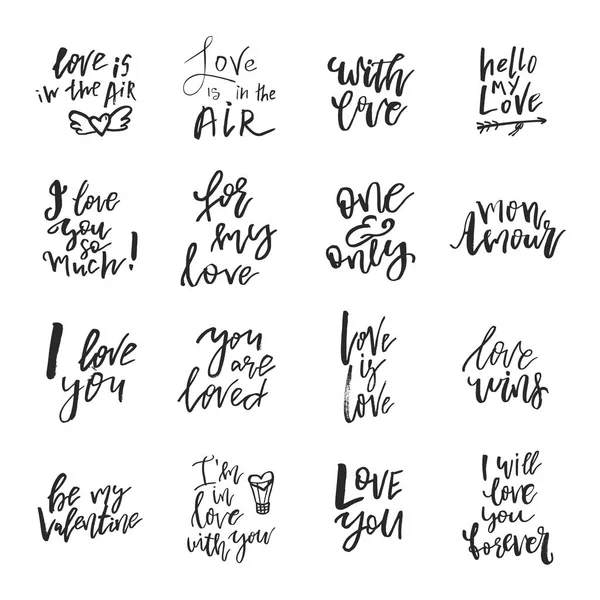 love is
in the AiR
Love
is in the
AiR
with
love
hello
MY
LOVE
I love
you
so
much!
for
my
love
one
&
only
mon
Amour
I love
you
you
are
loved
Love
is
Love
love
wins
be my
Valentine
I'm
in
love
with you
LOVE
you
I will
love
you
forever